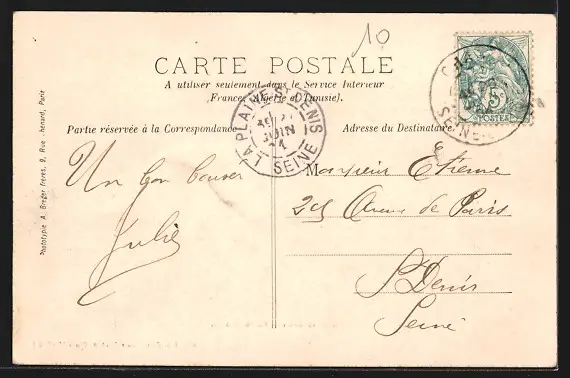 10
CARTE POSTALE
A utiliser seulement dans le Service Intérieur
(France, Algérie et Tunisie).
Partie réservée à la Correspondance
Adresse du Destinataire
LA PLAINE-ST-DENIS
JUIN
SEINE
5c
POSTES
Un bon baiser
Julie
Monsieur Etienne
215 Avenue de Paris
St Denis
Seine
Phototypie A. Breger frères, 9, Rue Thénard, Paris